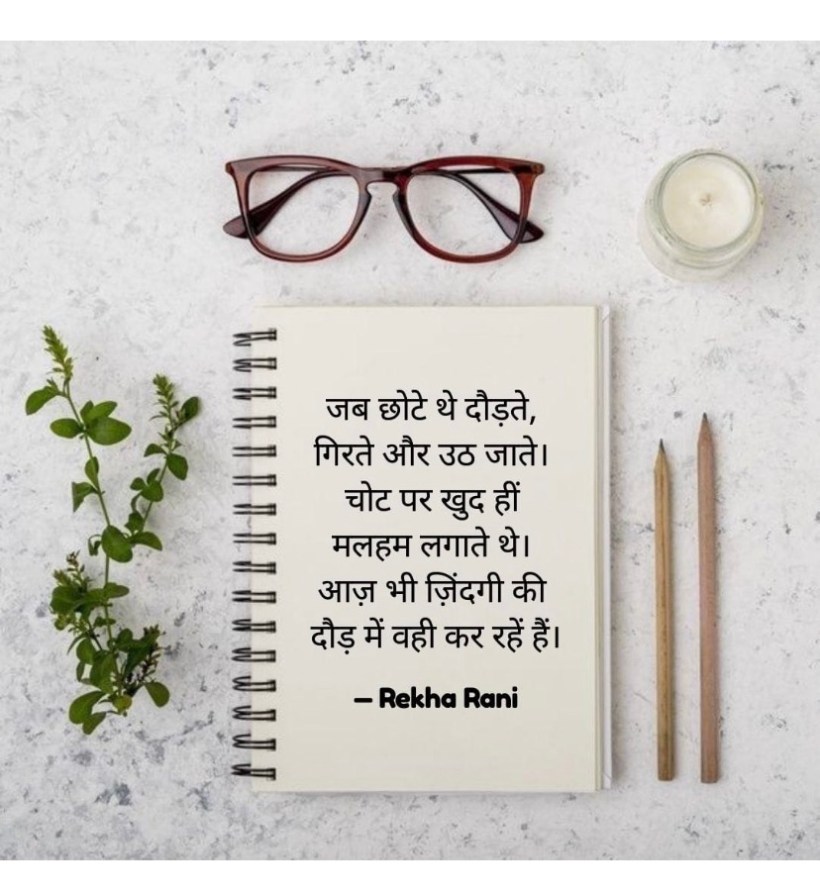 जब छोटे थे दौड़ते,
गिरते और उठ जाते।
चोट पर खुद हीं
मलहम लगाते थे।
आज़ भी ज़िंदगी की
दौड़ में वही कर रहें हैं।
— Rekha Rani